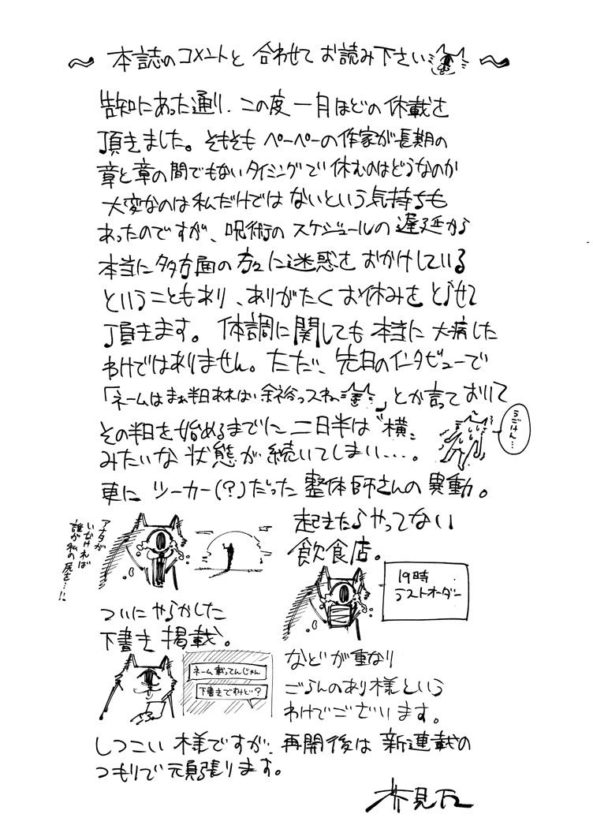 ～ 本誌のコメントと 合わせて お読み下さい ～
告知にあった通り、この度一月ほどの休載を
頂きました。そもそも ペーペーの作家が長期の
章と章の間でもないタイミングで休むのはどうなのか
大変なのは私だけではないという気持ちも
あったのですが、呪術のスケジュールの遅延から
本当に多方面の方々に迷惑をおかけしている
ということもあり、ありがたくお休みをとらせて
頂きます。体調に関しても本当に大病した
わけではありません。ただ、先日のインタビューで
「ネームはまぁ半日あれば余裕っスね」とか言っておいて
その半日を始めるまでに二日半は"横"
みたいな状態が続いてしまい…。
うごけん…
車に ツーカー(？)だった 整体師さんの異動。
アナタが
いなければ
誰が私の尻を…!!
起きたらやってない
飲食店。
19時
ラストオーダー
ついにやらかした
下書き掲載。
ネーム載ってんじゃん
下書きでわ？
などが重なり
ごらんのあり様という
わけでございます。
しつこい様ですが、再開後は新連載の
つもりで頑張ります。
芥見下々